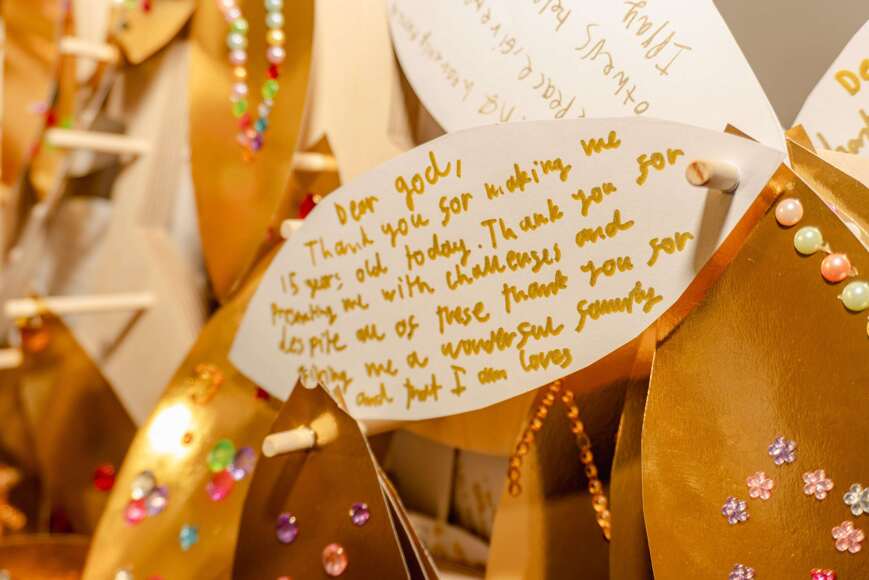 Dear god,
Thank you for making me
15 years old today. Thank you for
Presenting me with challenges and
despite all of these thank you for
giving me a wonderful family
and that I am loves
Ipray
others
help
peace
Dea